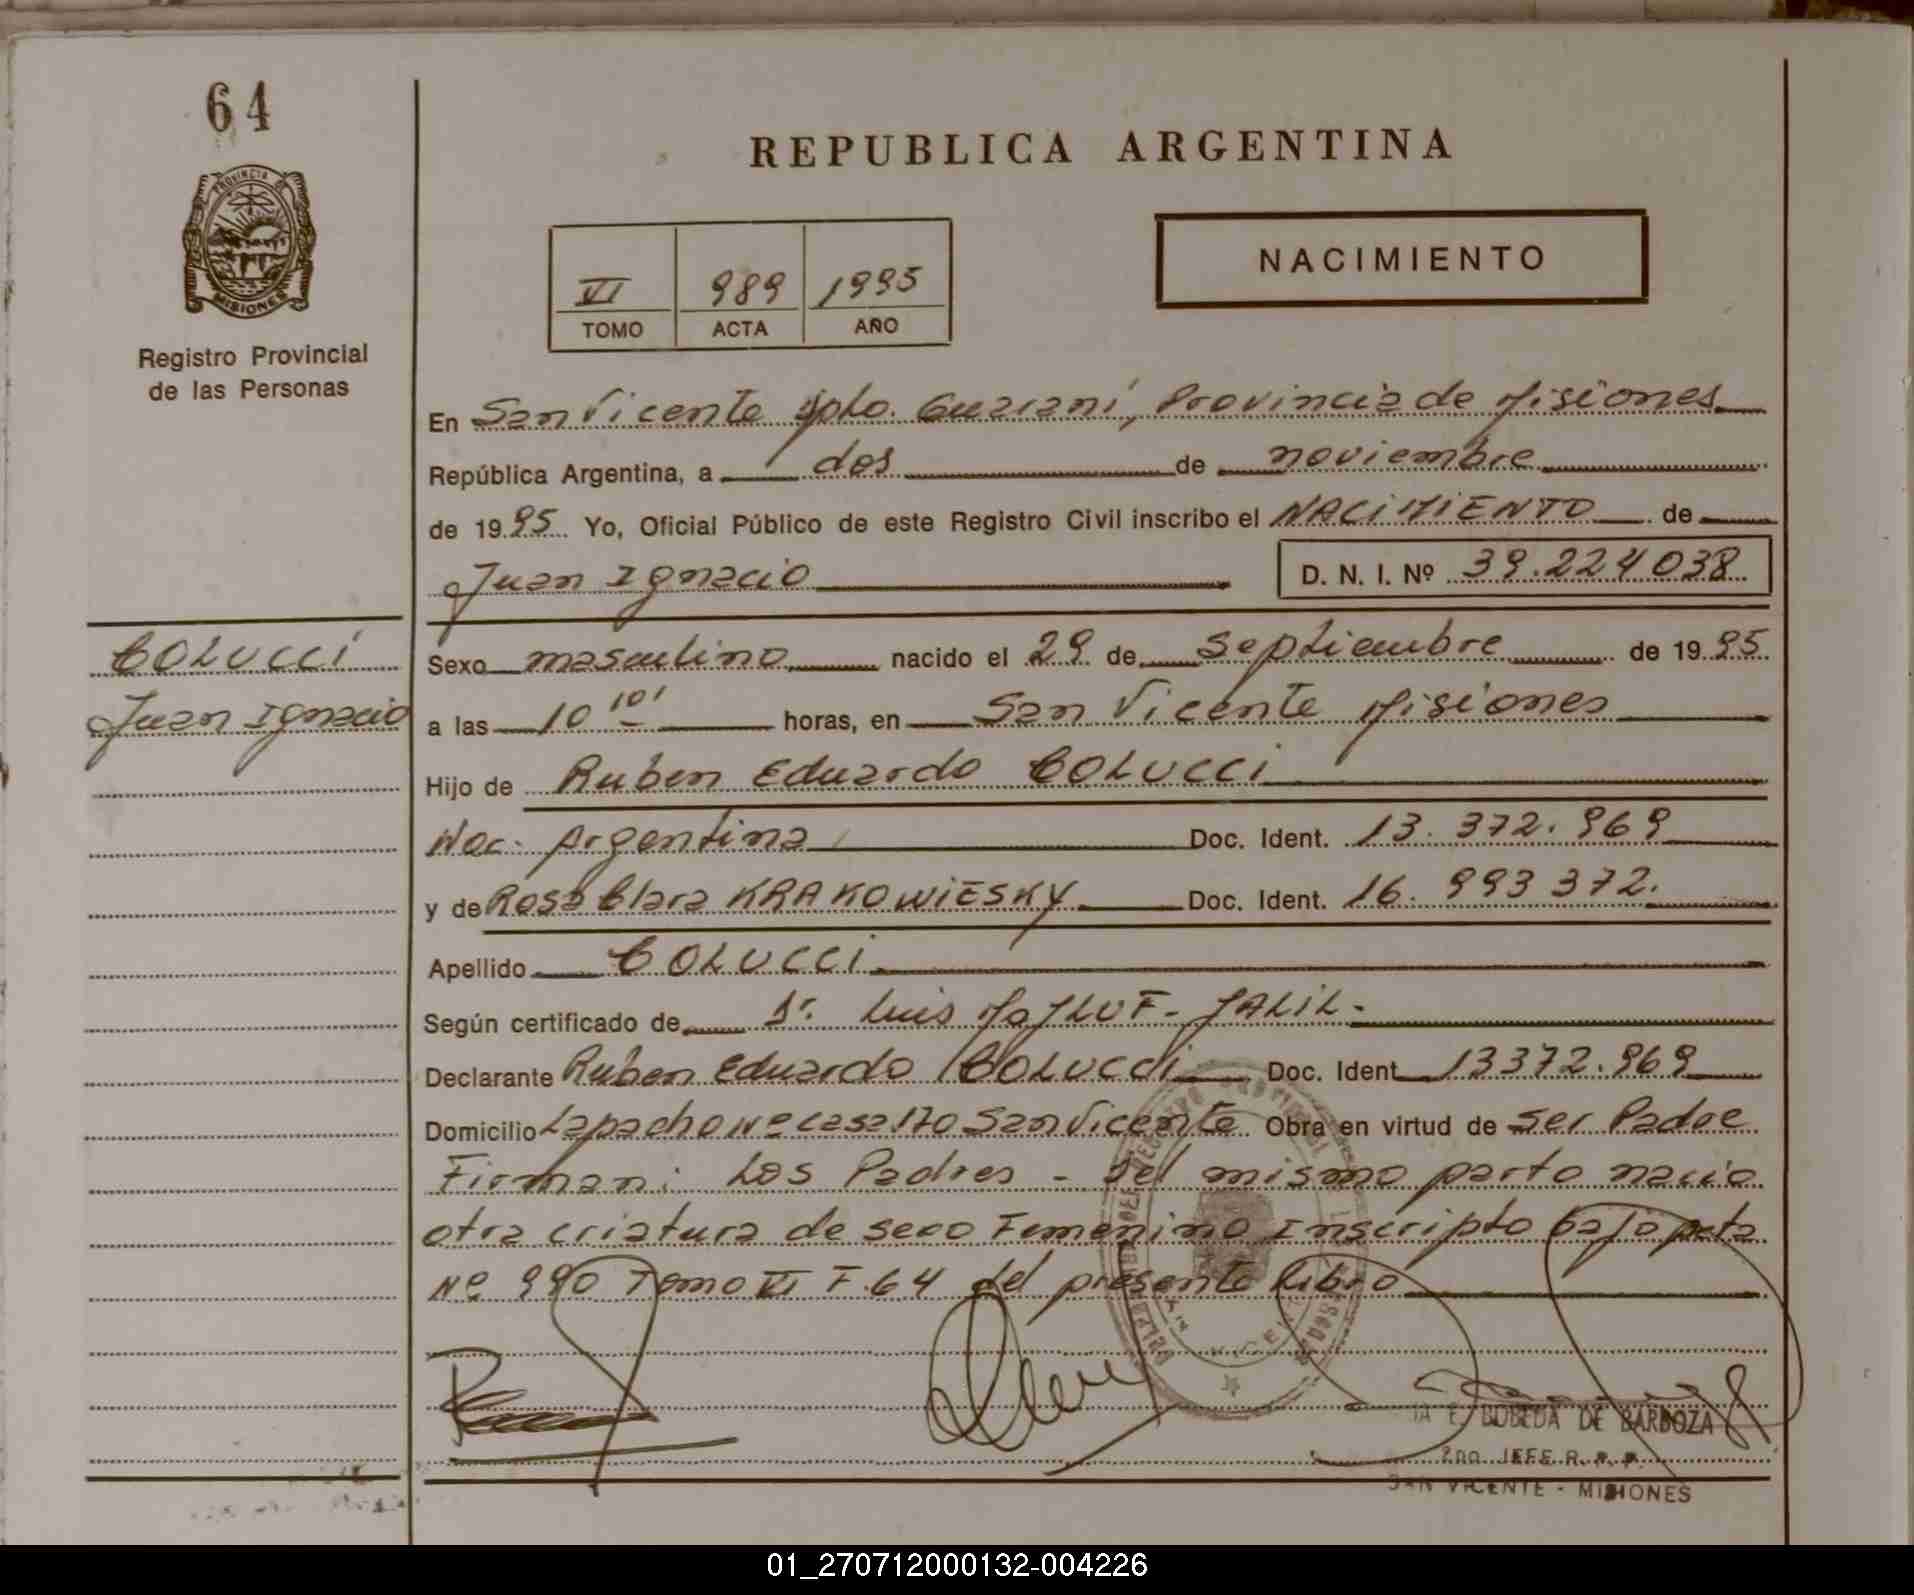 64
PROVINCIA DE
MISIONES
Registro Provincial
de las Personas
REPUBLICA ARGENTINA
VI 989 1995
TOMO ACTA AÑO
NACIMIENTO
En San Vicente Dpto. Guaraní, Provincia de Misiones
República Argentina, a dos de noviembre
de 1995 Yo, Oficial Público de este Registro Civil inscribo el NACIMIENTO de
Juan Ignacio D. N. I. Nº 39.224038
COLUCCI
Juan Ignacio
Sexo masculino nacido el 29 de Septiembre de 1995
a las 10 10' horas, en San Vicente Misiones
Hijo de Ruben Eduardo COLUCCI
Nac. Argentina Doc. Ident. 13.372.969
y de Rosa Clara KRAKOWIESKY Doc. Ident. 16.993372.
Apellido COLUCCI
Según certificado de Dr. Luis MAJLUF-JALIL-
Declarante Ruben Eduardo COLUCCI Doc. Ident 13372.969
Domicilio Lapacho Nº casa 170 San Vicente Obra en virtud de ser Padre
Firman: Los Padres - Del mismo parto nacio
otra criatura de sexo Femenino Inscripto bajo Acta
Nº 990 Tomo VI F.64 del presente libro
BOBEDA DE BARBOZA
2DO. JEFE R. P. P.
SAN VICENTE - MISIONES
01_270712000132-004226